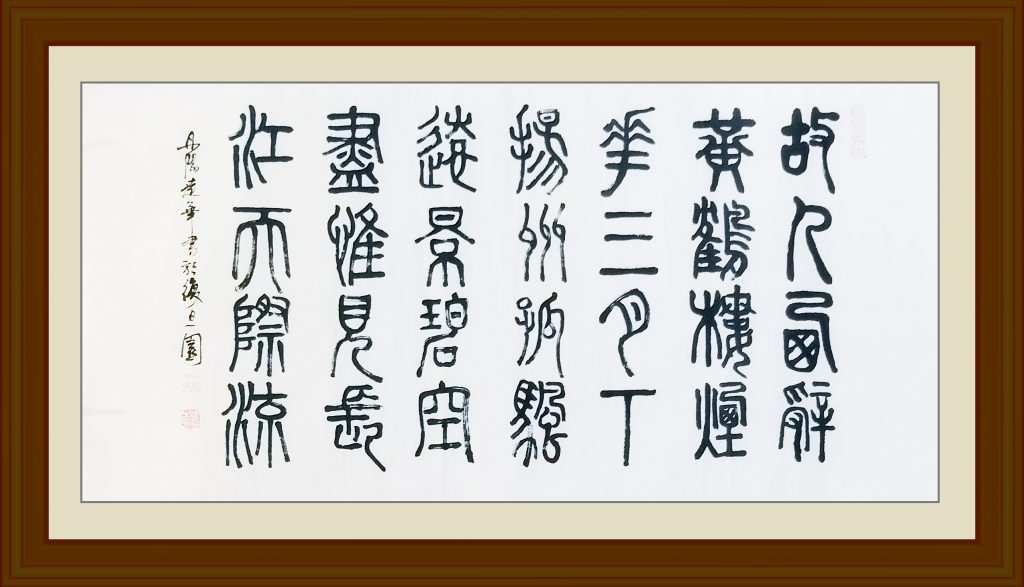 故人西辭
黃鶴樓煙
華三月下
揚州孤颿
遠景碧空
盡惟見長
江天際流
丹陽華書於復旦園